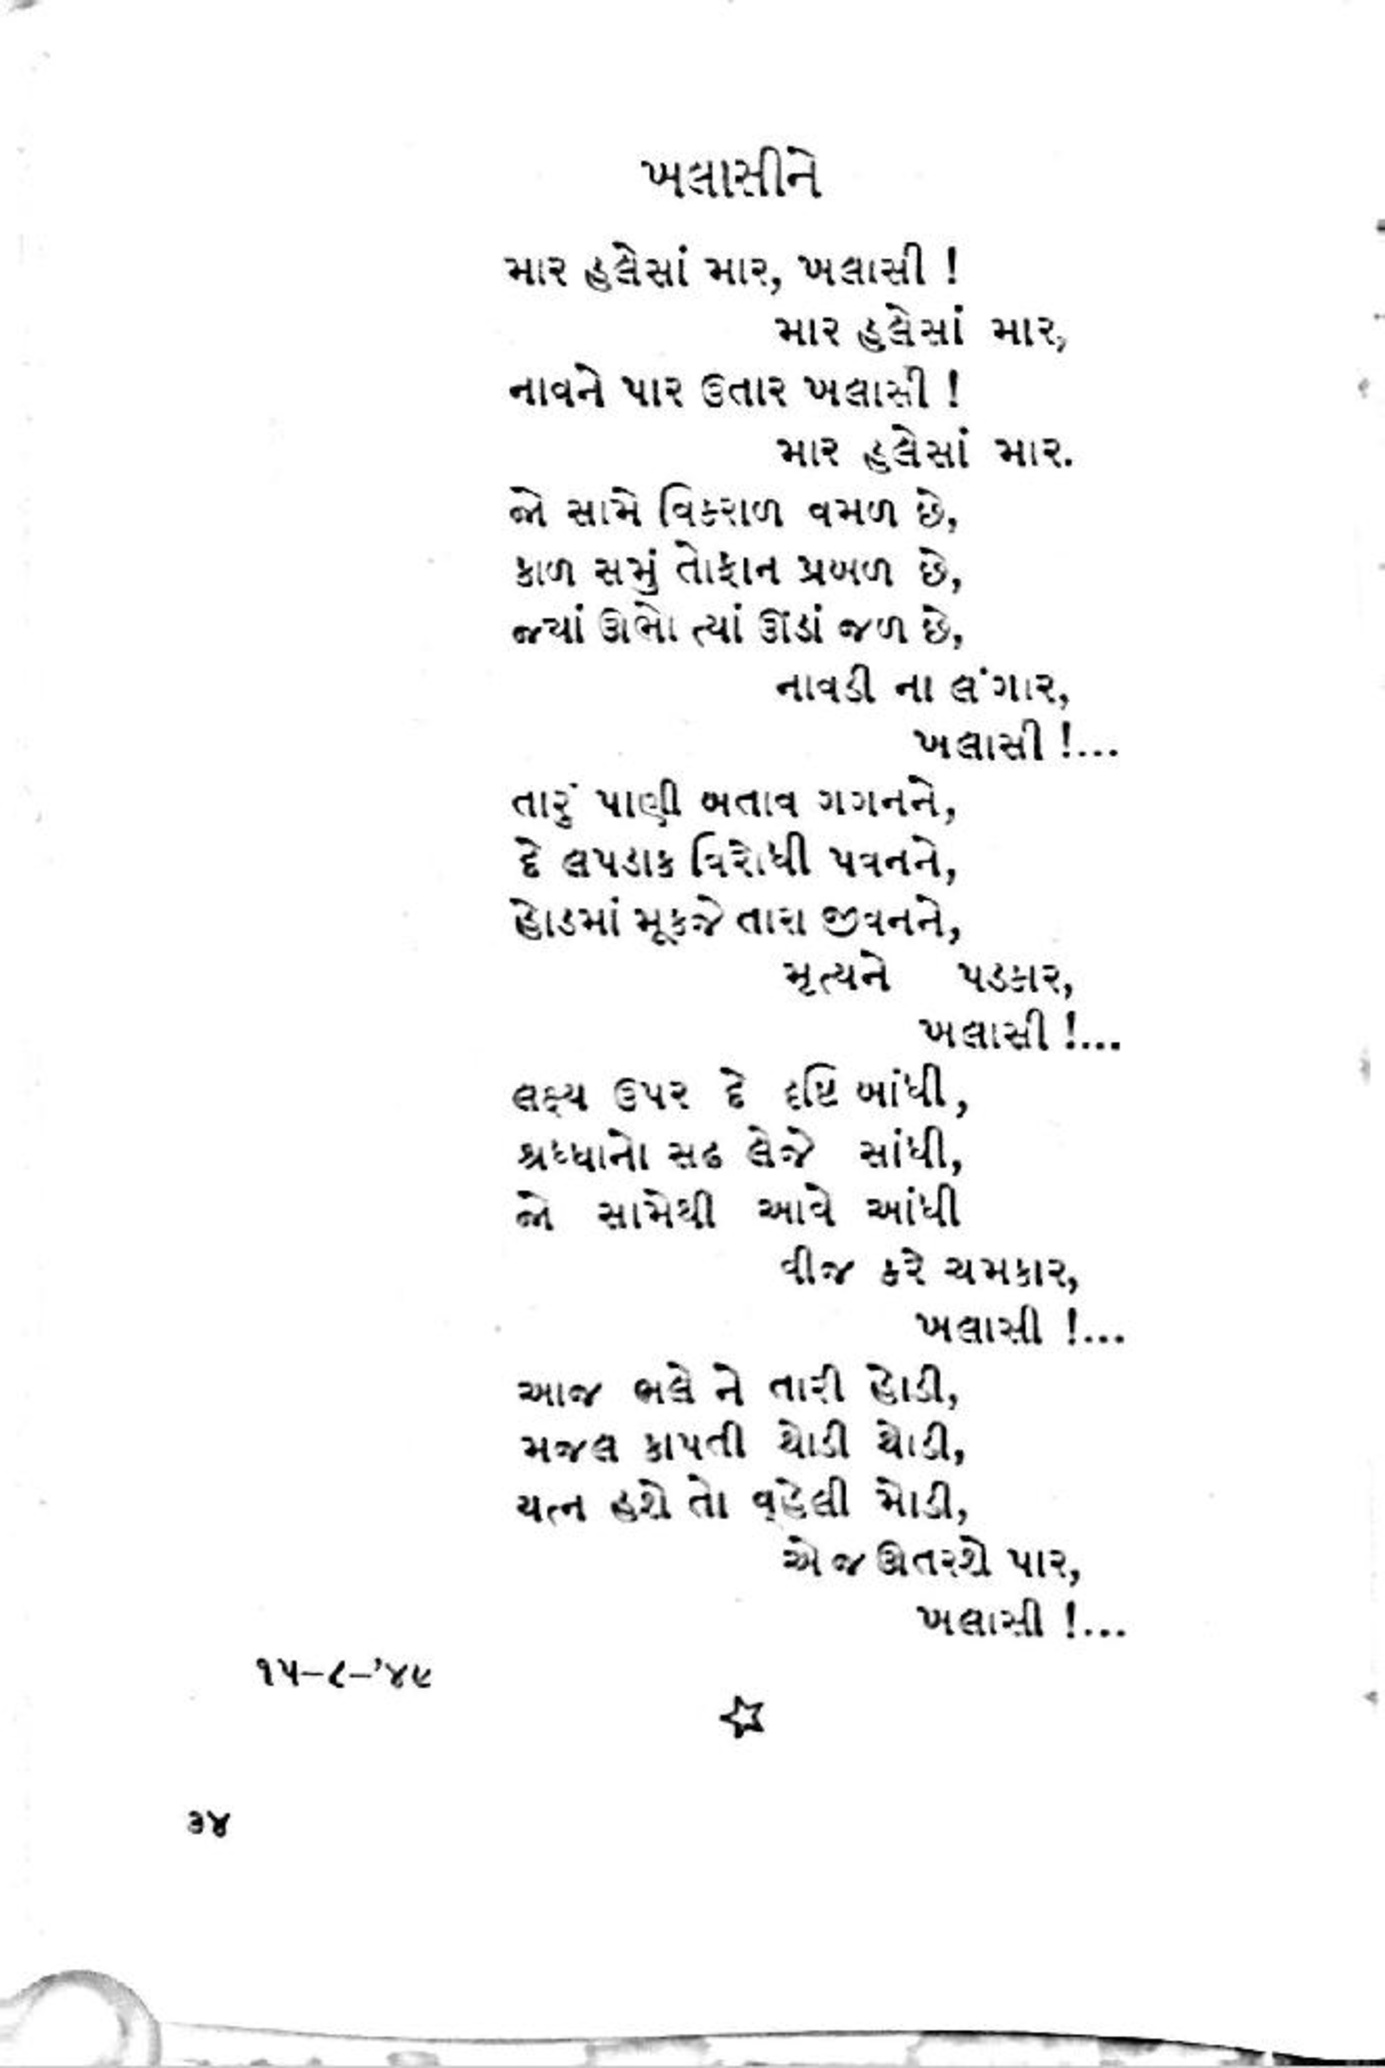 ખલાસીને
માર હલેસાં માર, ખલાસી !
માર હલેસાં માર,
નાવને પાર ઉતાર ખલાસી !
માર હલેસાં માર.
જો સામે વિકરાળ વમળ છે,
કાળ સમું તોફાન પ્રબળ છે,
જ્યાં ઊભો ત્યાં ઊંડાં જળ છે,
નાવડી ના લંગાર,
ખલાસી !...
તારું પાણી બતાવ ગગનને,
દે લપડાક વિરોધી પવનને,
હોડમાં મૂકજે તારા જીવનને,
મૃત્યને પડકાર,
ખલાસી !...
લક્ષ્ય ઉપર દે દૃષ્ટિ બાંધી,
શ્રધ્ધાનો સઢ લેજે સાંધી,
જો સામેથી આવે આંધી
વીજ કરે ચમકાર,
ખલાસી !...
આજ ભલે ને તારી હોડી,
મજલ કાપતી થોડી થોડી,
યત્ન હશે તો વ્હેલી મોડી,
એ જ ઊતરશે પાર,
ખલાસી !...
૧૫–૮–’૪૯
૩૪